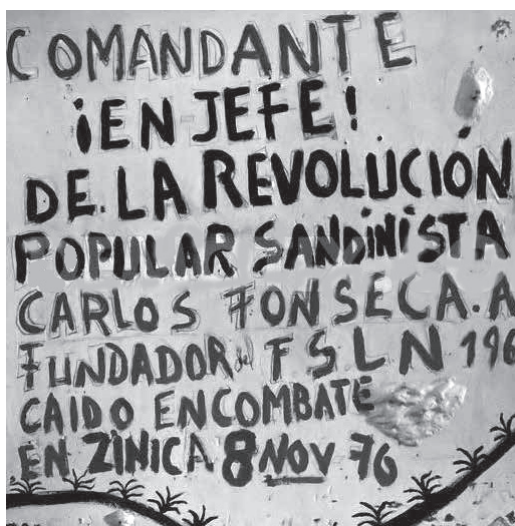 COMANDANTE
¡EN JEFE!
DE LA REVOLUCIÓN
POPULAR SANDINISTA
CARLOS FONSECA.A
FUNDADOR del FSLN 196
CAIDO EN COMBATE
EN ZINICA 8 NOV 76